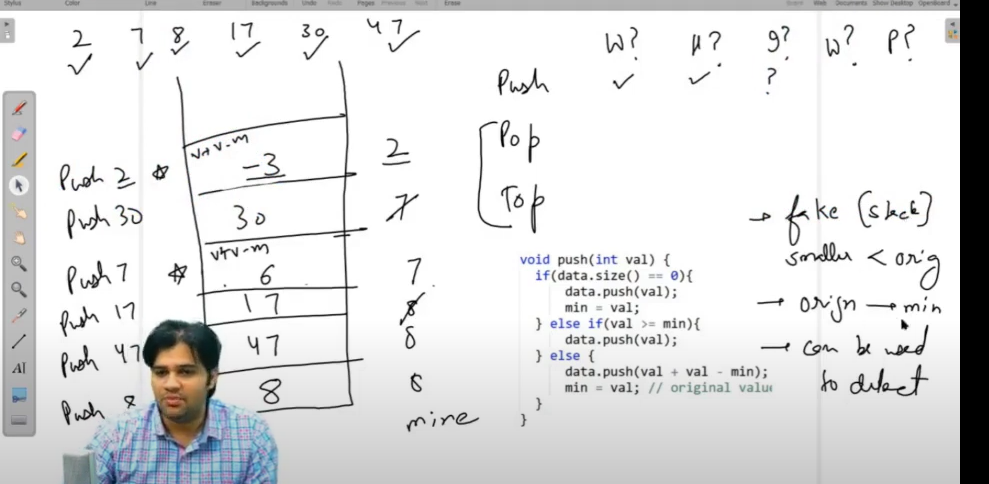 Style Color Line Eraser Backgrounds Undo Redo Pages Previous Next Erase Board Web Documents Show Desktop OpenBoard
2 7 8 17 30 47
W? H? g? W? P?
Push ?
Pop
Top
v+v-m
Push 2 -3 2
Push 30 30 7
v+v-m
Push 7 6 7
Push 17 17 8
Push 47 47 8
Push 8 8 8
mine
void push(int val) {
if(data.size() == 0){
data.push(val);
min = val;
} else if(val >= min){
data.push(val);
} else {
data.push(val + val - min);
min = val; // original value
}
}
→ fake (stack)
smaller < orig
→ orign → min
→ can be used
to detect
AI